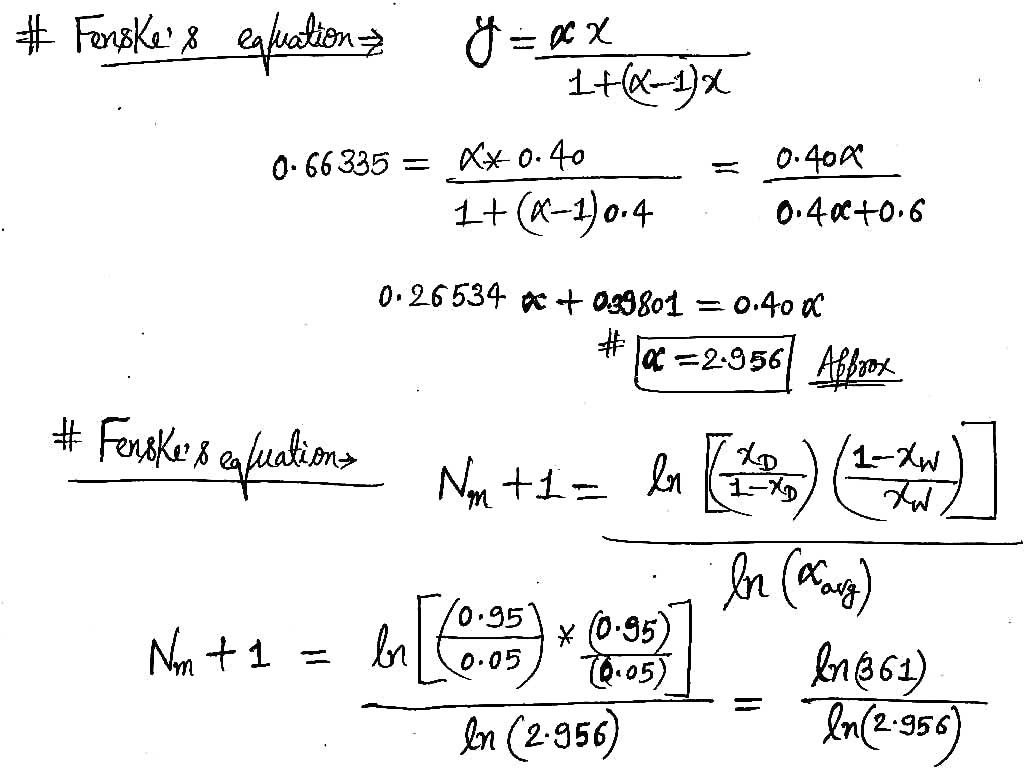 # Fenske's equation ⇒ y = αx / 1+(α-1)x
0.66335 = α* 0.40 / 1+(α-1)0.4 = 0.40α / 0.4α+0.6
0.26534 α + 0.39801 = 0.40 α
# α = 2.956 Approx
# Fenske's equation→ Nm +1 = ln [(xD / 1-xD) (1-xW / xW)] / ln (αavg)
Nm + 1 = ln [(0.95 / 0.05) * (0.95) / (0.05)] / ln (2.956) = ln(361) / ln(2.956)